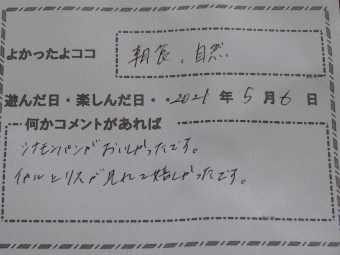 よかったよココ 朝食、自然
遊んだ日・楽しんだ日・・2021年5月6日
何かコメントがあれば
シナモンパンがおいしかったです。
イルとリスが見れて嬉しかったです。